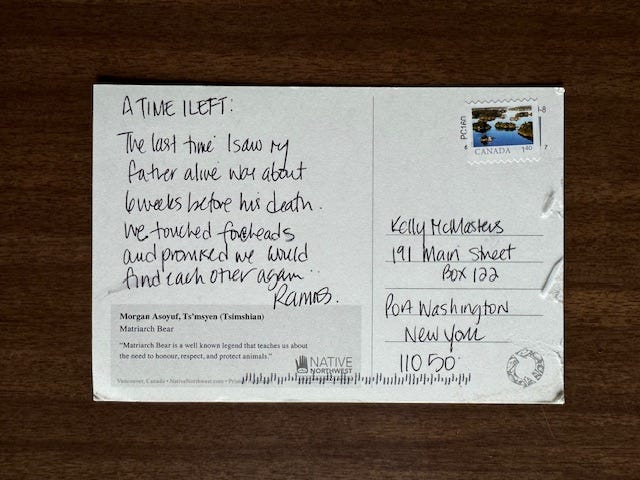 A TIME I LEFT:
The last time I saw my
father alive was about
6 weeks before his death.
We touched foreheads
and promised we would
find each other again
Ramos.
Morgan Asoyuf, Ts'msyen (Tsimshian)
Matriarch Bear
"Matriarch Bear is a well known legend that teaches us about
the need to honour, respect, and protect animals."
NATIVE
NORTHWEST
Vancouver, Canada • NativeNorthwest.com •
CANADA
140
Kelly McMasters
191 Main Street
Box 122
Port Washington
New York
11050